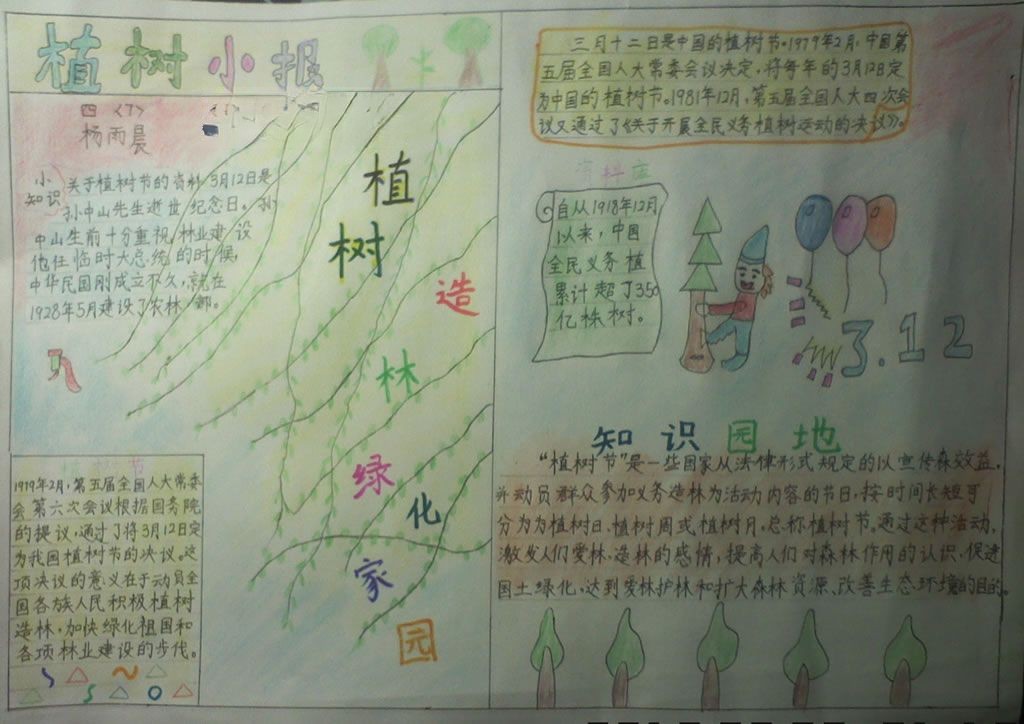 植树小报
四〈7〉
杨雨晨
小知识
关于植树节的资料3月12日是
孙中山先生逝世纪念日。孙
中山生前十分重视林业建设
他任临时大总统的时候,
中华民国刚成立不久,就在
1928年5月建设了农林部。
植树造林绿化家园
1979年2月,第五届全国人大常委
会第六次会议根据国务院
的提议,通过了将3月12日定
为我国植树节的决议。这
项决议的意义在于动员全
国各族人民积极植树
造林,加快绿化祖国和
各项林业建设的步伐。
三月十二日是中国的植树节。1979年2月,中国第
五届全国人大常委会议决定,将每年的3月12日定
为中国的植树节。1981年12月,第五届全国人大四次会
议又通过了《关于开展全民义务植树运动的决议》。
资料库
自从1918年12月
以来,中国
全民义务植
累计超了350
亿株树。
3.12
知识园地
“植树节”是一些国家以法律形式规定的以宣传森效益,
并动员群众参加义务造林为活动内容的节日,按时间长短可
分为为植树日、植树周或植树月,总称植树节。通过这种活动,
激发人们爱林、造林的感情,提高人们对森林作用的认识,促进
国土绿化,达到爱林护林和扩大森林资源、改善生态环境的目的。